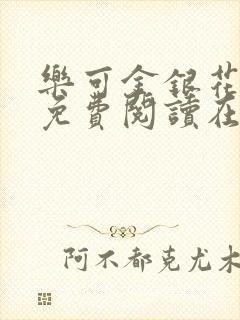 樂可金銀花
免費閱讀在
阿不都克尤木